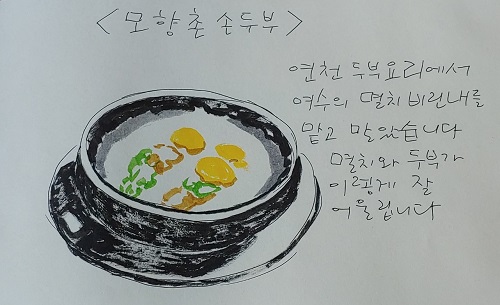 <모향촌 손두부>
연천 두부요리에서
여수의 멸치 비린내를
맡고 말았습니다
멸치와 두부가
이렇게 잘
어울립니다